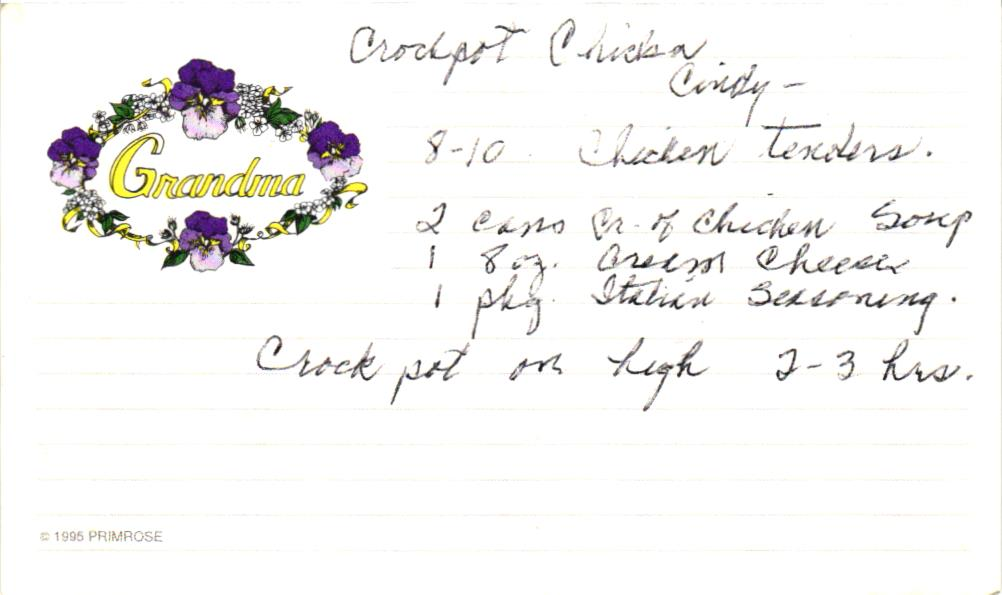 Crockpot Chicken
Cindy -
Grandma
8-10 Chicken tenders.
2 cans Cr. of Chicken Soup
1 8 oz. Cream Cheese
1 pkg. Italian Seasoning.
Crock pot on high 2-3 hrs.
© 1995 PRIMROSE